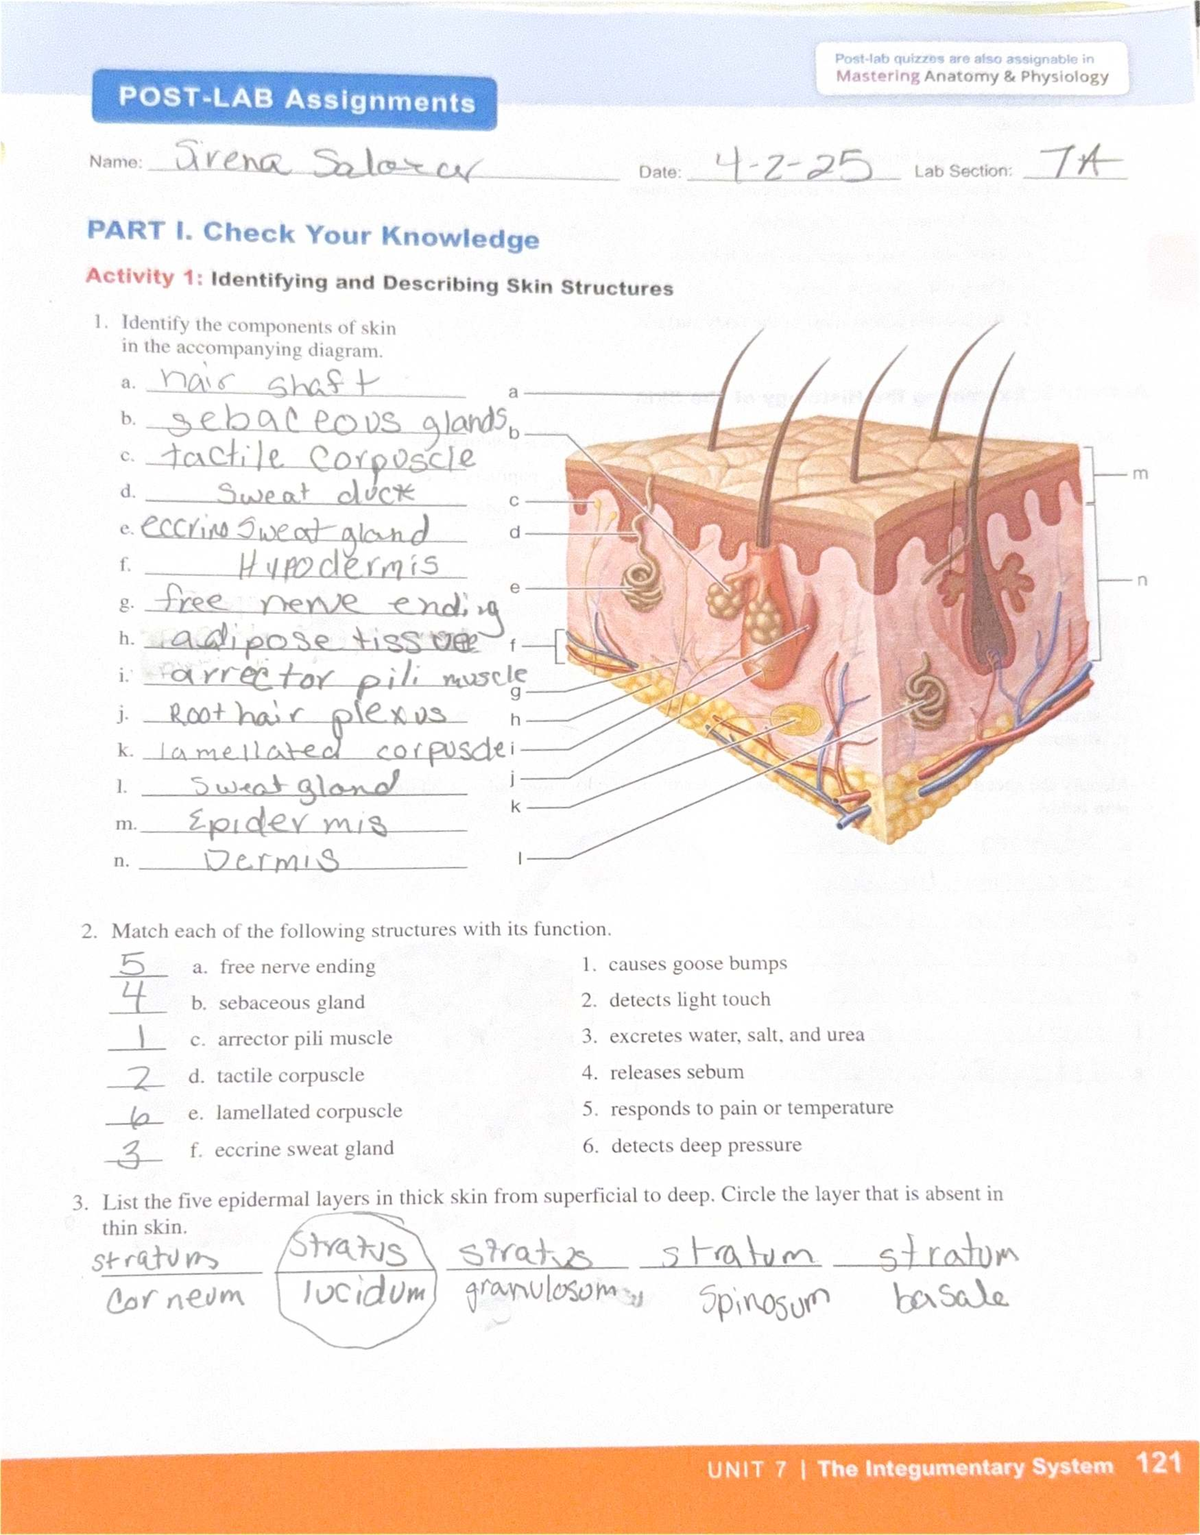 Post-lab quizzes are also assignable in
Mastering Anatomy & Physiology
POST-LAB Assignments
Name: Sirena Salazar Date: 4-2-25 Lab Section: 7A
PART I. Check Your Knowledge
Activity 1: Identifying and Describing Skin Structures
1. Identify the components of skin
in the accompanying diagram.
a. hair shaft
b. sebaceous glands
c. tactile corpuscle
d. Sweat duck
e. eccrino Sweat gland
f. Hypodermis
g. free nerve ending
h. adipose tissue
i. arrector pili muscle
j. Root hair plexus
k. lamellated corpuscle
l. Sweat gland
m. Epidermis
n. Dermis
a
b
c
d
e
f
g
h
i
j
k
l
m
n
2. Match each of the following structures with its function.
5 a. free nerve ending 1. causes goose bumps
4 b. sebaceous gland 2. detects light touch
1 c. arrector pili muscle 3. excretes water, salt, and urea
2 d. tactile corpuscle 4. releases sebum
6 e. lamellated corpuscle 5. responds to pain or temperature
3 f. eccrine sweat gland 6. detects deep pressure
3. List the five epidermal layers in thick skin from superficial to deep. Circle the layer that is absent in
thin skin.
stratum Stratus stratus stratum stratum
Corneum lucidum granulosum Spinosum basale
UNIT 7 | The Integumentary System 121